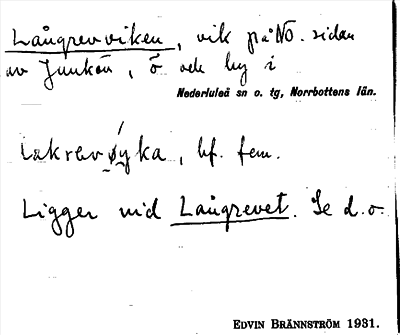 Långrevviken, vik på NO. sidan
av Junkön, ö och by i
Nederluleå sn o. tg, Norrbottens län.
bf. fem.
Ligger vid Långrevet. Se d. o.
EDVIN BRÄNNSTRÖM 1931.